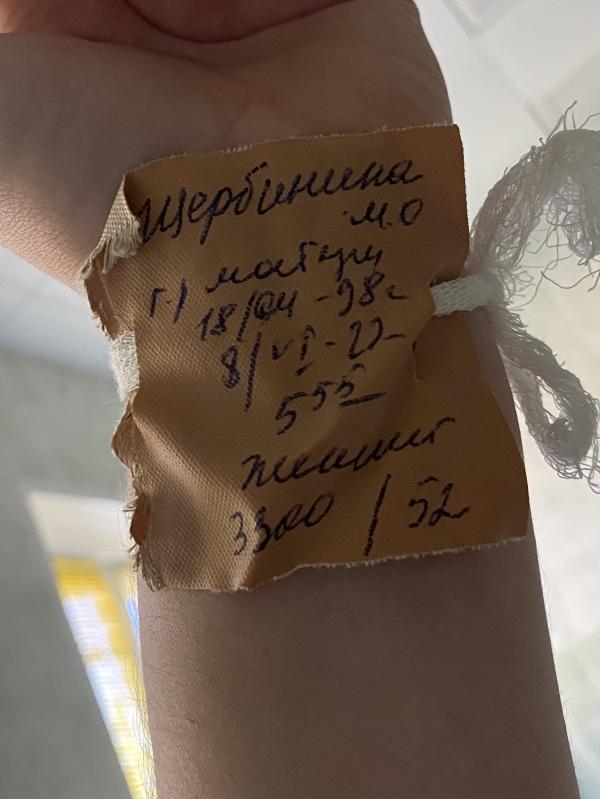 Щербинина
М.О
18/04-98г
8/VI-22
555
3300 / 52